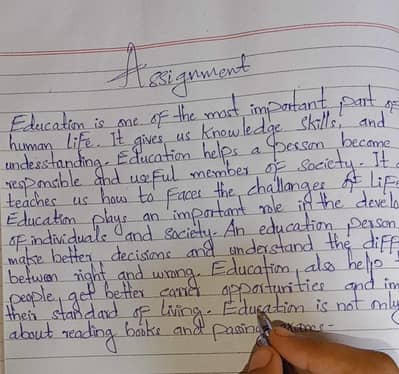 Assignment
Education is one of the most important part of
human life. It gives us knowledge skills, and
undesstanding. Education helps a person become
responsible and useful member of society. It
teaches us how to faces the challanges of Life
Education plays an important role in the develo
of individuals and society. An education person
make better decisions and understand the diff
betwen right and wrong. Education also help
people get better carrier opportunities and im
their standard of living. Education is not only
about reading books and pasing